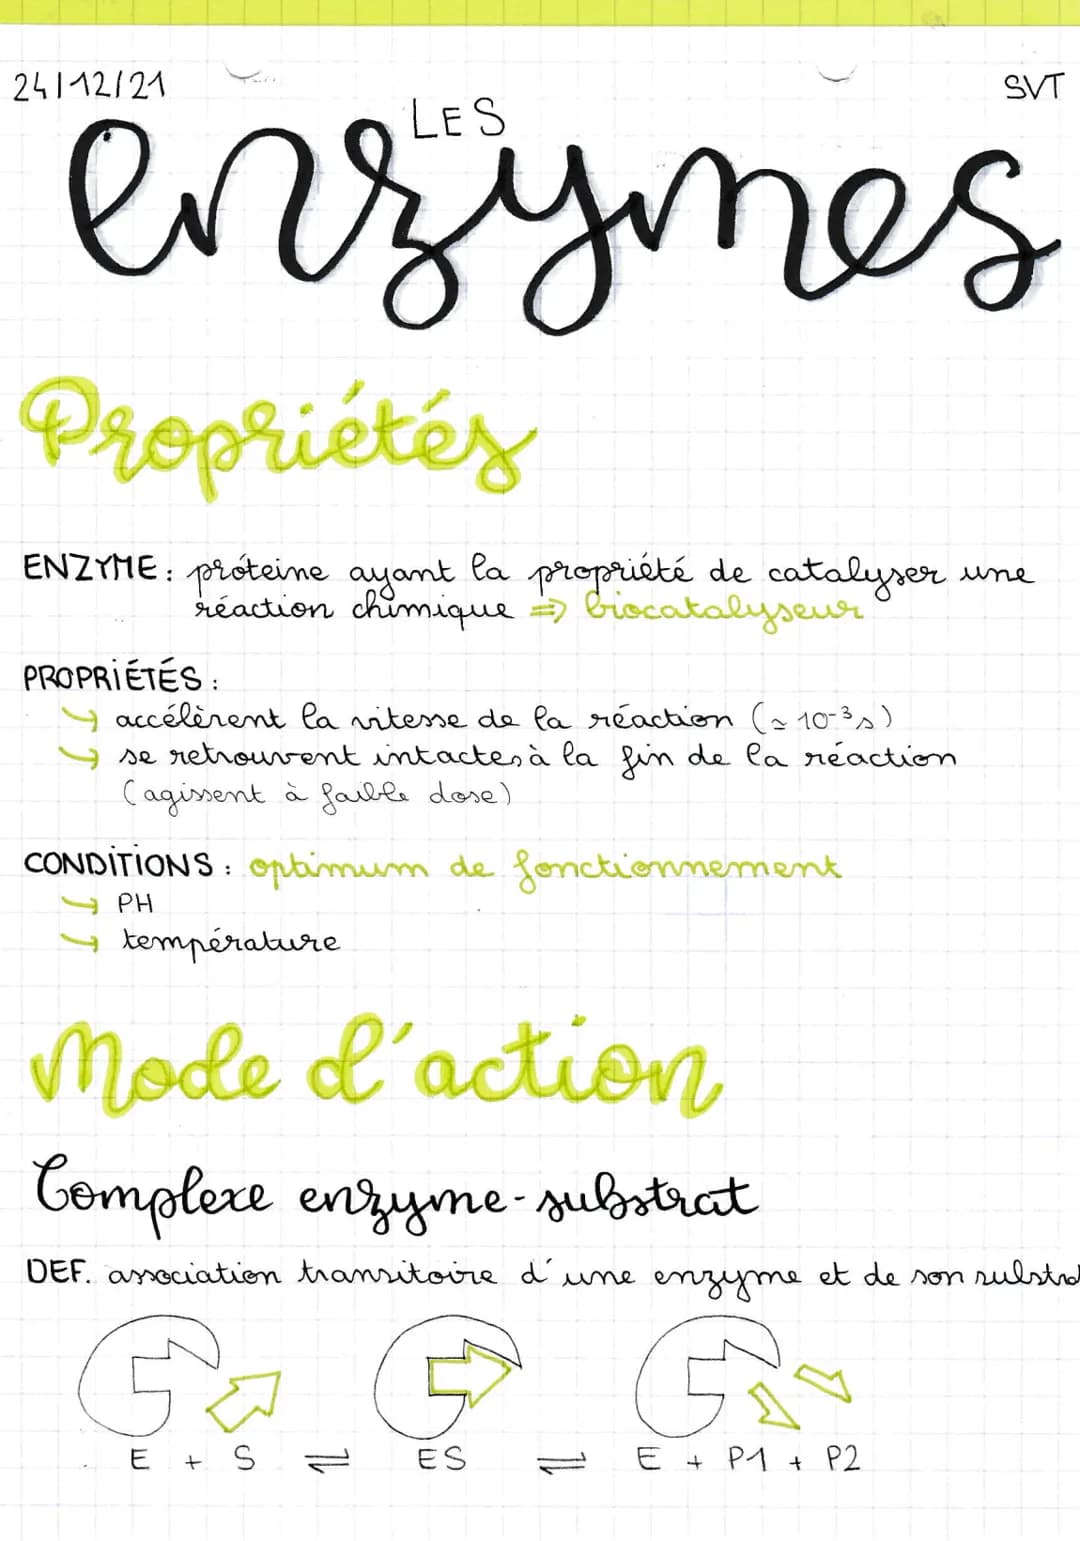 24/12/21
SVT
LES
enzymes
Propriétés
ENZYME : próteine ayant la propriété de catalyser une
réaction chimique => biocatalyseur
PROPRIÉTÉS :
↳ accélèrent la vitesse de la réaction (≃ 10⁻³s)
↳ se retrouvent intactes à la fin de la réaction
(agissent à faible dose)
CONDITIONS : optimum de fonctionnement
↳ PH
↳ température
Mode d'action
Complexe enzyme-substrat
DEF. association transitoire d'une enzyme et de son substrat
E + S ⇌ ES ⇌ E + P1 + P2